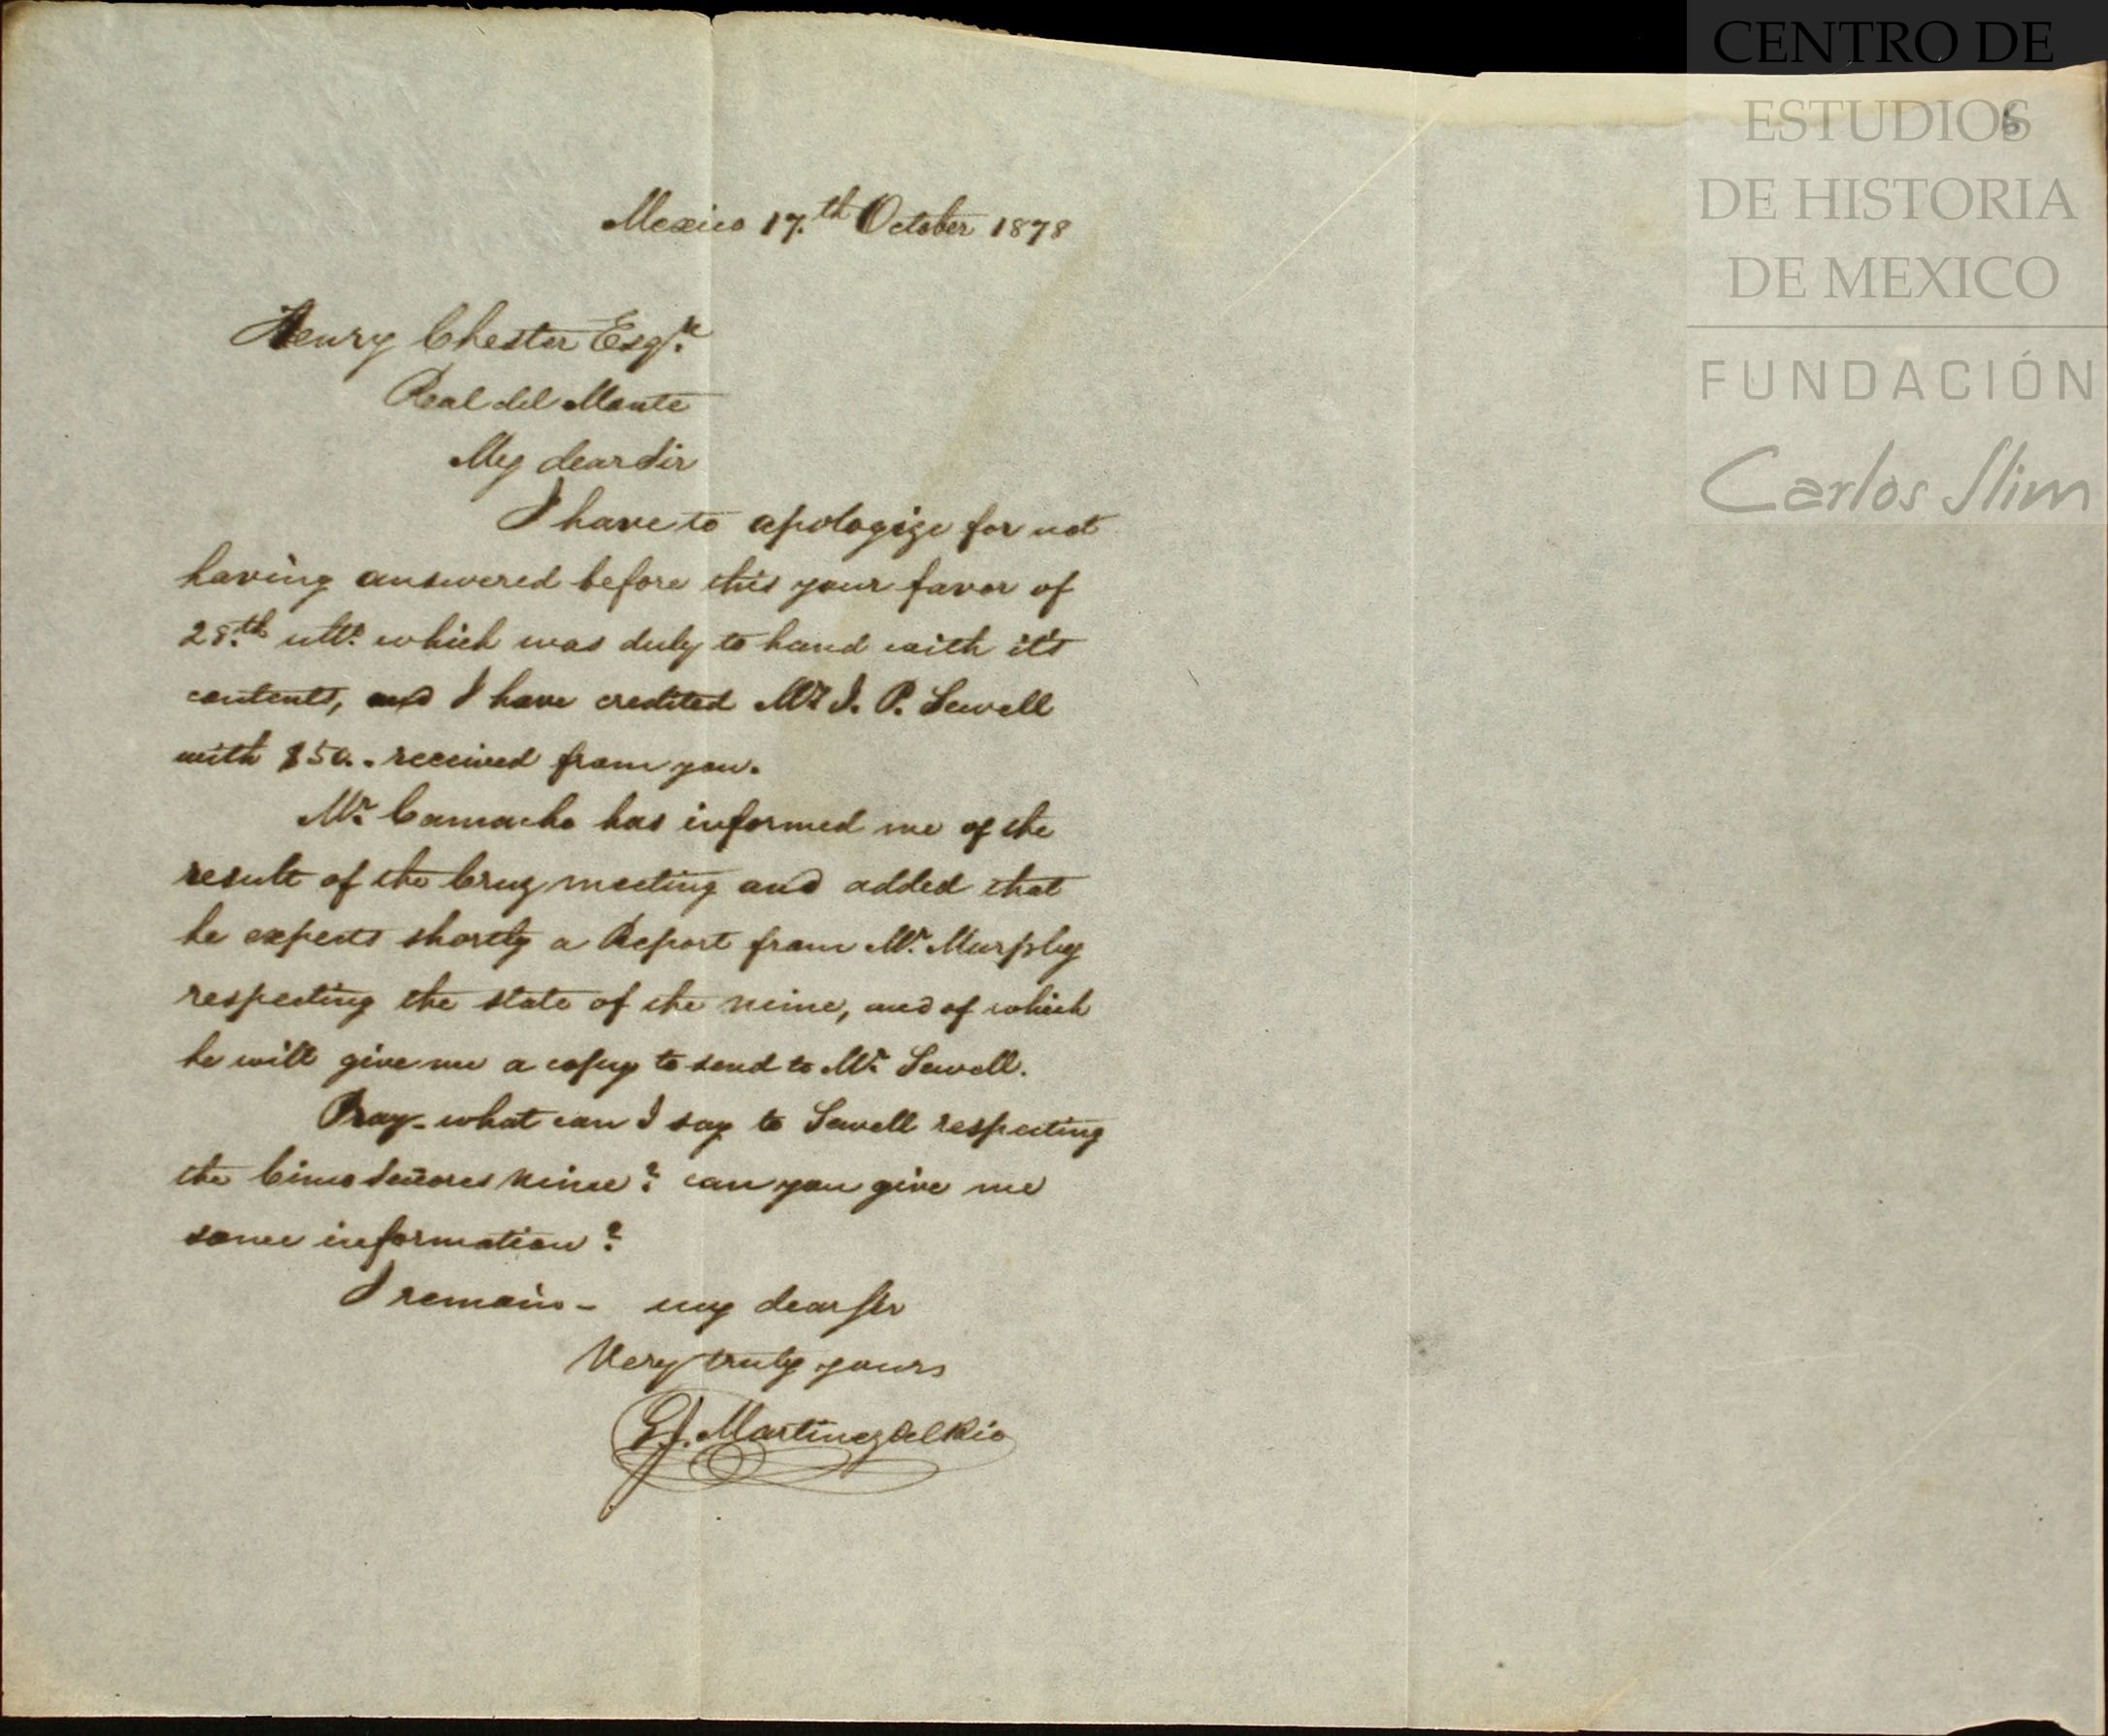 Mexico 17.th October 1878
Henry Chester Esqre
Real del Monte
My dear Sir
I have to apologize for not
having answered before this your favor of
28.th ulto. which was duly to hand with it's
contents, and I have credited Mr. J. P. Sewell
with $50.- received from you.
Mr. Camacho has informed me of the
result of the Cruz meeting and added that
he expects shortly a Report from Mr. Murphy
respecting the state of the mine, and of which
he will give me a copy to send to Mr. Sewell.
Pray - what can I say to Sewell respecting
the Cinco Señores Mine? can you give me
some information?
I remain - my dear Sir
Very truly yours
Martinez del Rio
CENTRO DE
ESTUDIOS
DE HISTORIA
DE MEXICO
FUNDACIÓN
Carlos Slim